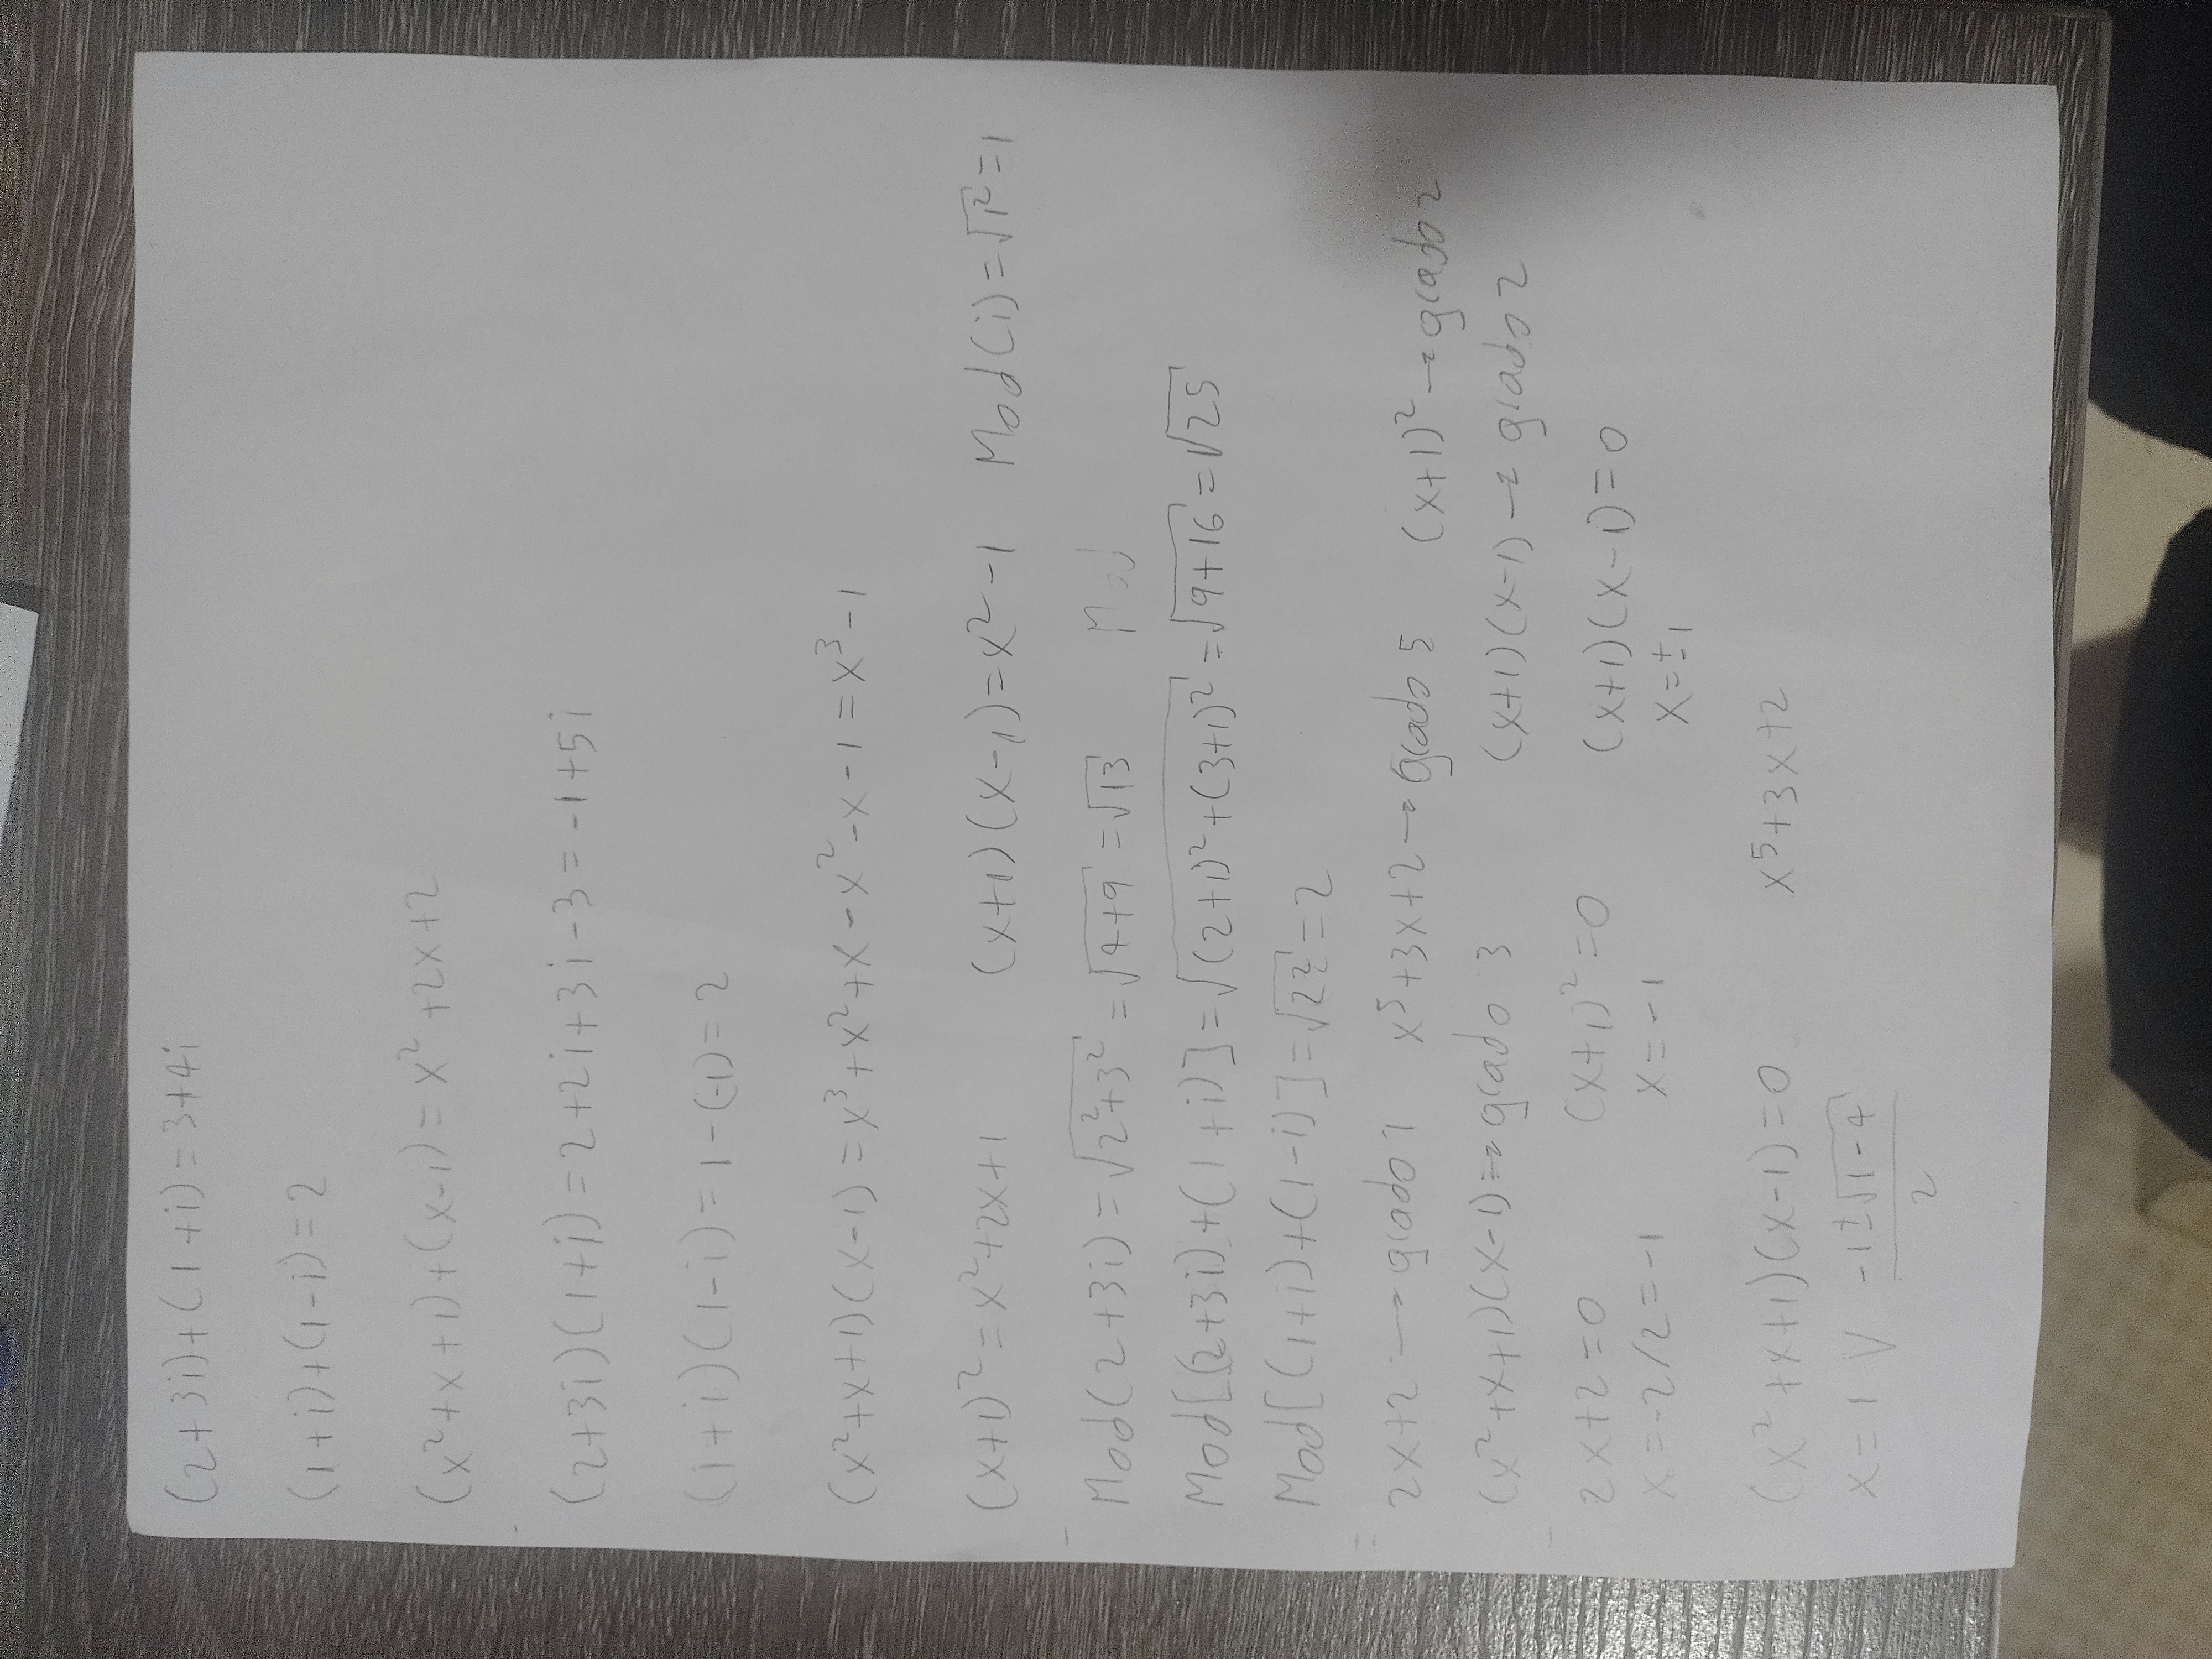 (2+3i)+(1+i)=3+4i
(1+i)+(1-i)=2
(x²+x+1)+(x-1)=x²+2x+2
(2+3i)(1+i)=2+2i+3i-3=-1+5i
(1+i)(1-i)=1-(-1)=2
(x²+x+1)(x-1)=x³+x²+x-x²-x-1=x³-1
(x+1)²=x²+2x+1 (x+1)(x-1)=x²-1 Mod(i)=√1²=1
Mod(2+3i)=√2²+3²=√4+9=√13 Mod
Mod[(2+3i)+(1+i)]=√(2+1)²+(3+1)²=√9+16=√25
Mod[(1+i)+(1-i)]=√2²=2
2x+2→grado 1 x⁵+3x+2→grado 5 (x+1)²→grado 2
(x²+x+1)(x-1)→grado 3 (x+1)(x-1)→grado 2
2x+2=0 (x+1)²=0 (x+1)(x-1)=0
x=-2/2=-1 x=-1 x=±1
(x²+x+1)(x-1)=0 x⁵+3x+2
x=1 V -1±√1-4
2